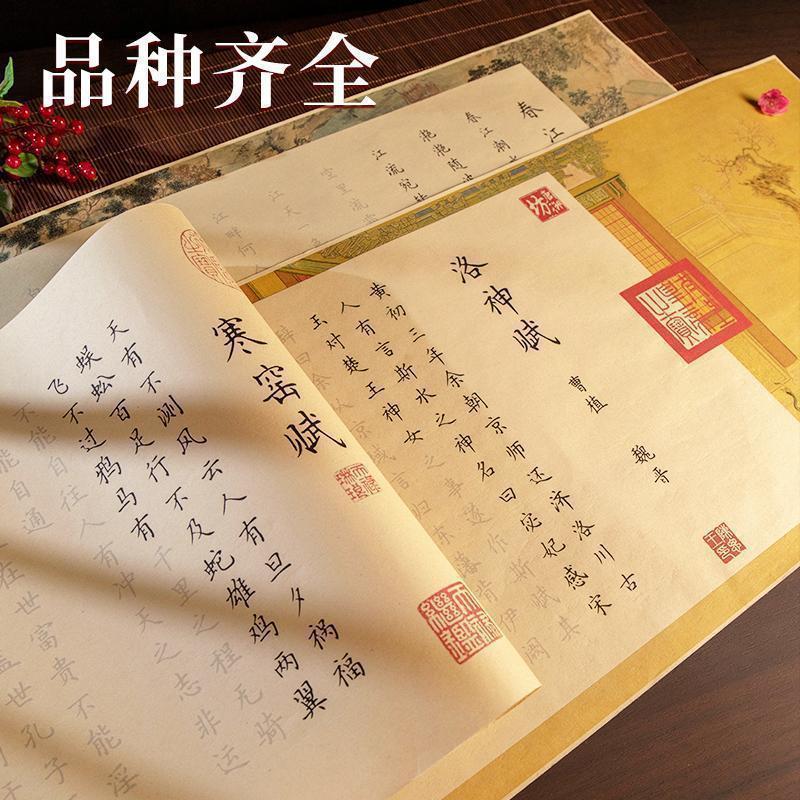 品种齐全
春江
春江潮
滟滟随波
江流宛转
空里流
江天一
江畔何
洛神赋
曹植
魏晋
黄初三年余朝京师还济洛川古
人有言斯水之神名曰宓妃感宋
玉对楚王神女之事遂作斯赋其
辞曰余从京域言归东藩背伊阙
寒窑赋
天有不测风云人有旦夕祸福
蜈蚣百足行不及蛇雄鸡两翼
飞不过鸦马有千里之程无骑
不能自往人有冲天之志非运
不能自通
在世富贵不能淫
盖世孔子